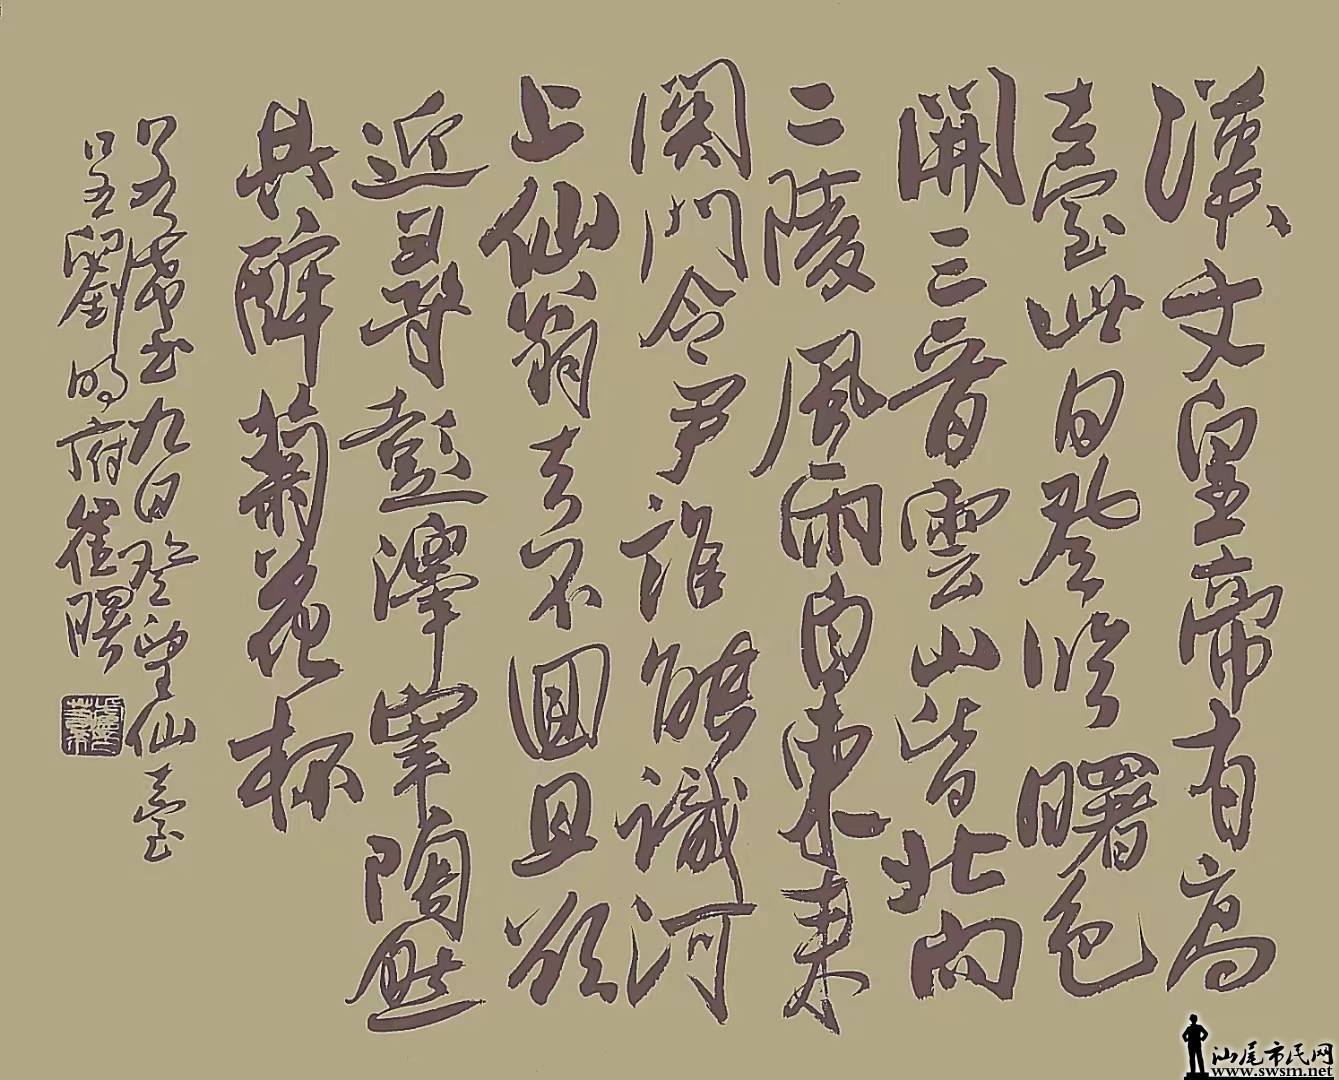 漢文皇帝有高
臺此日登臨曙色
開三晉雲山皆北向
二陵風雨自東來
關門令尹誰能識河
上仙翁去不回且欲
近尋彭澤宰陶然
共醉菊花杯
書九日登望仙臺
呈劉明府崔曙
汕尾市民网
www.swsm.net